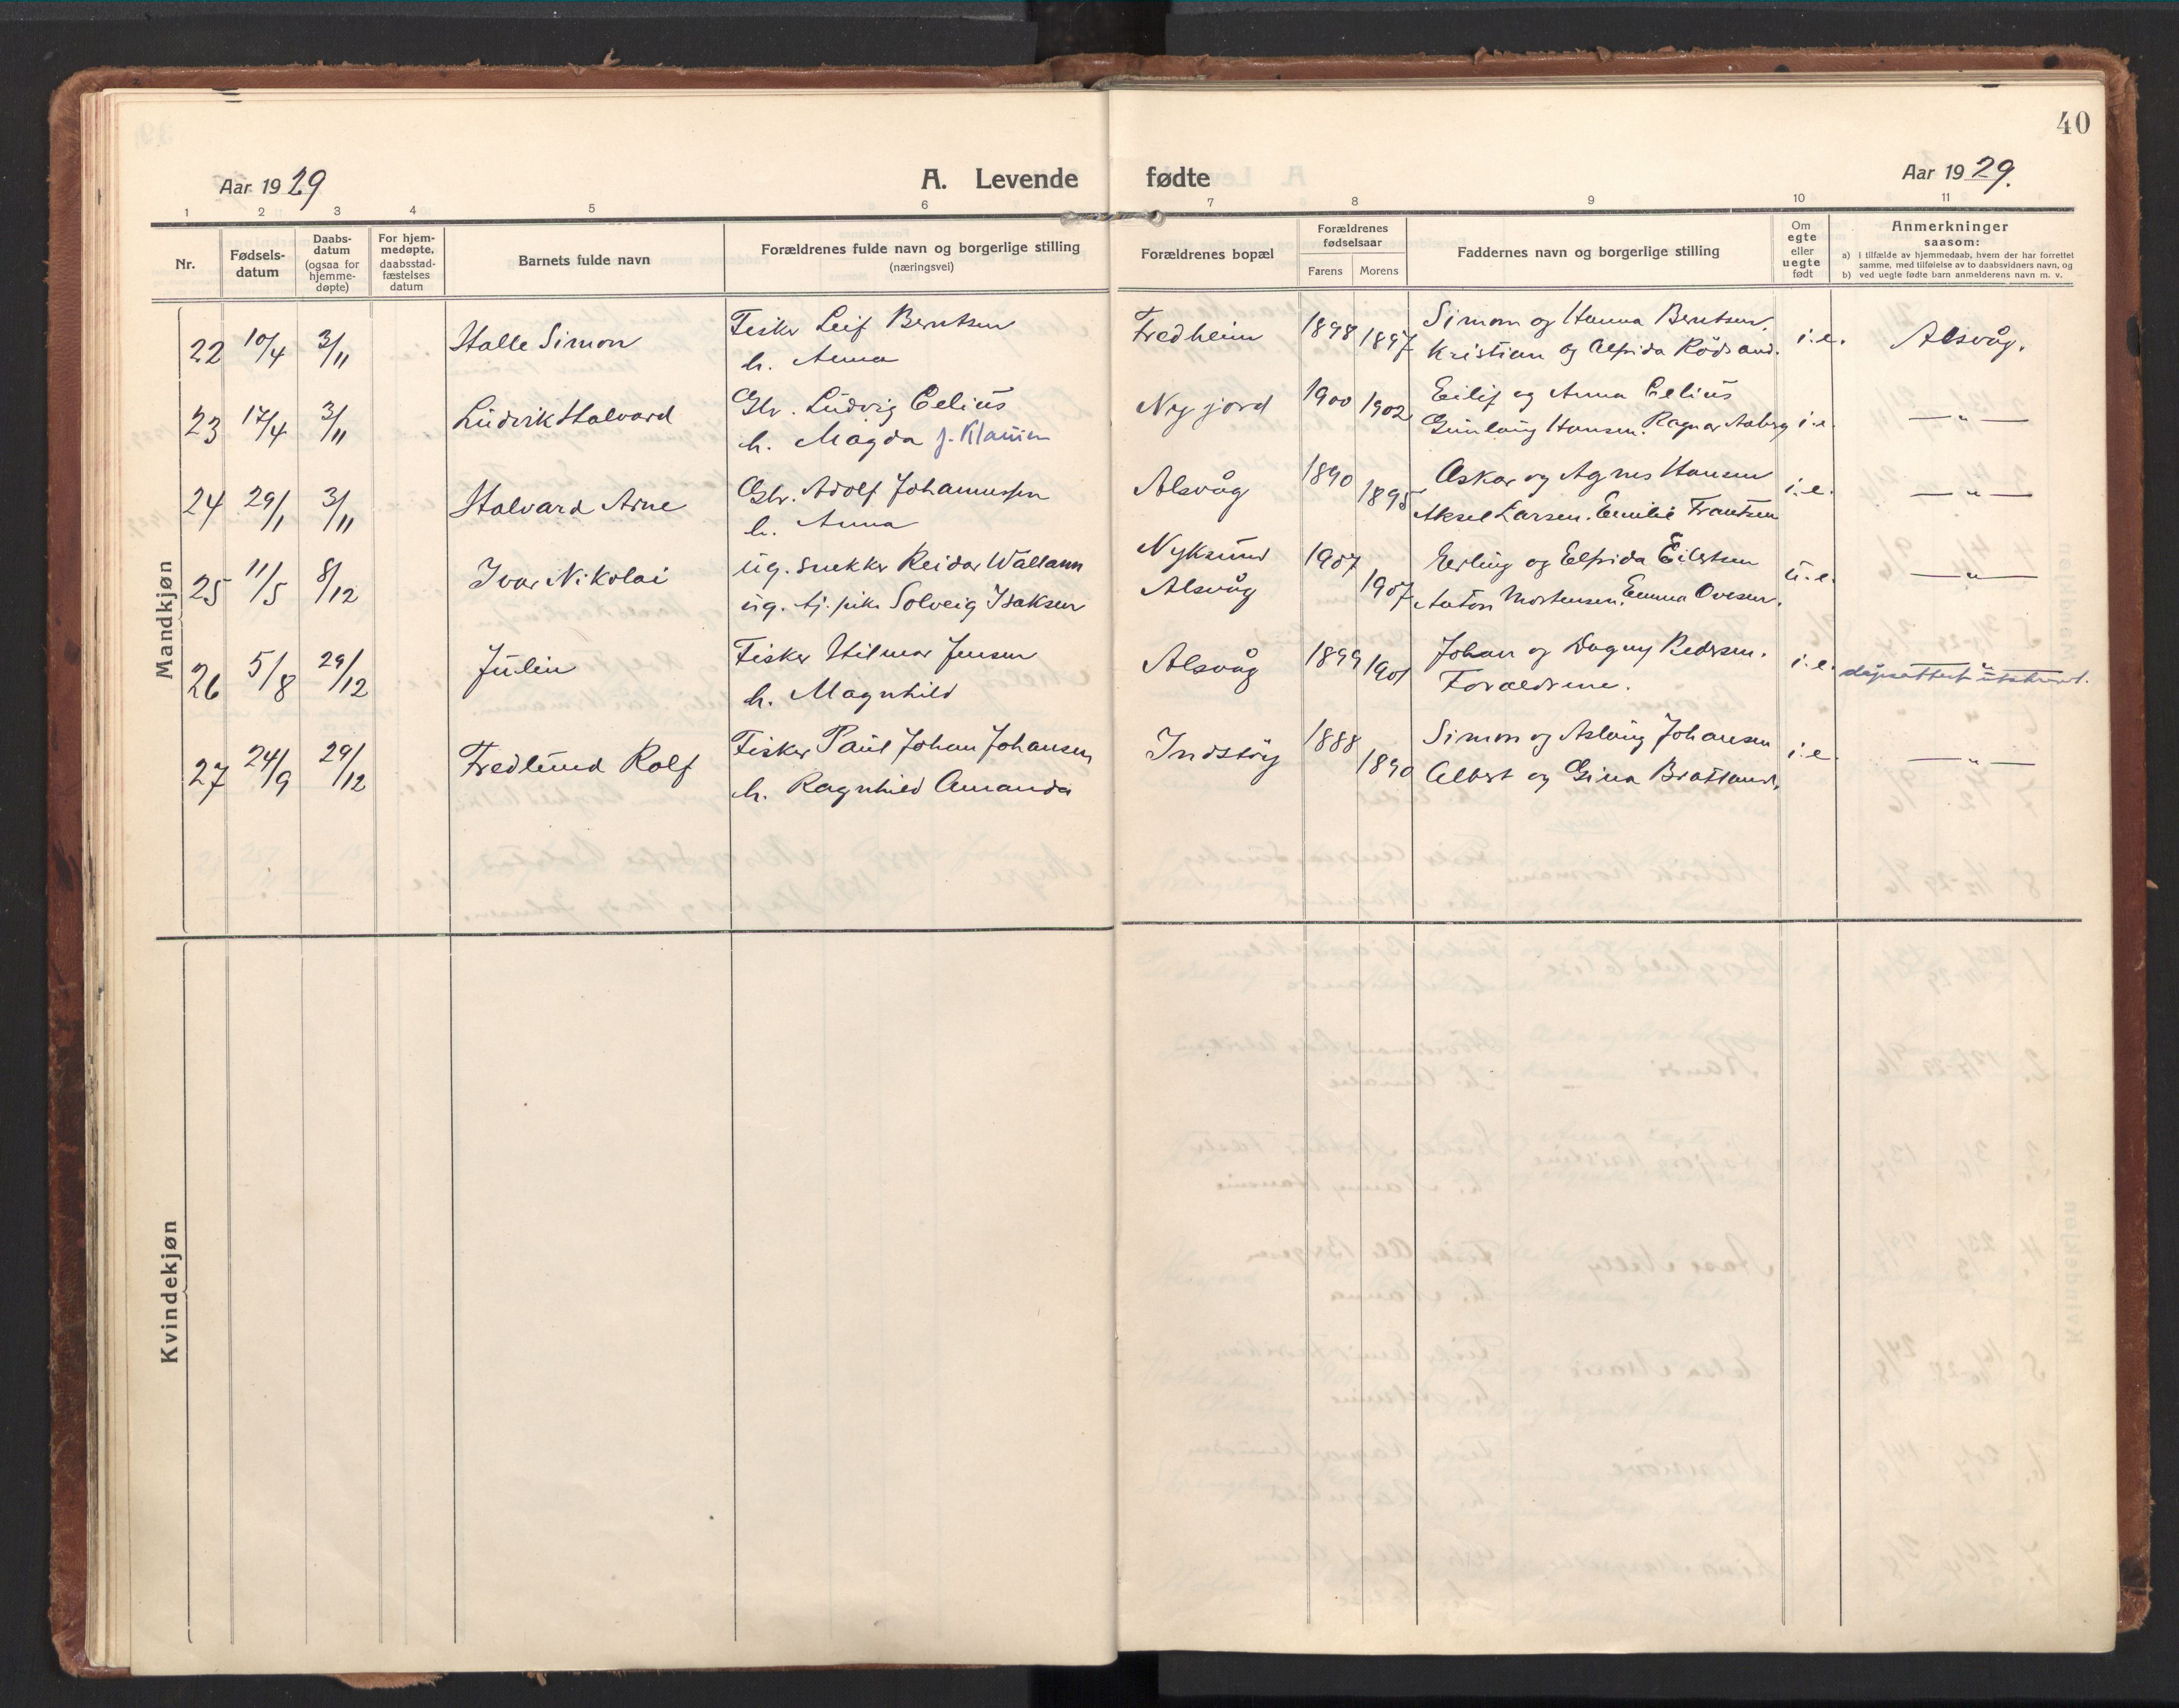 40
Aar 1929
A. Levende fødte
Aar 1929.
1 2 3 4 5 6 7 8 9 10 11
Nr.
Fødsels-
datum
Daabs-
datum
(ogsaa for
hjemme-
døpte)
For hjem-
medøpte,
daabsstad-
fæstelses
datum
Barnets fulde navn
Forældrenes fulde navn og borgerlige stilling
(næringsvei)
Forældrenes bopæl
Forældrenes
fødselsaar
Farens Morens
Faddernes navn og borgerlige stilling
Om
egte
eller
uegte
født
Anmerkninger
saasom:
a) i tilfælde av hjemmedaab, hvem der har forrettet
samme, med tilføielse av to daabsvidners navn, og
b) ved uegte fødte barn anmelderens navn m. v.
Mandkjøn
22 10/4 3/11 Halle Simon Fisker Leif Berntsen Fredheim 1898 Simon og Hanna Berntsen. i.e. Alsvåg.
h. Anna 1897 Kristian og Alfida Rødsand.
23 17/4 3/11 Ludvik Halvard Gbr. Ludvig Celius Nyjord 1900 Eilif og Anna Celius i.e. — " —
h. Magda f. Klausen 1902 Gunlaug Hansen. Ragnar Aaberg
24 29/1 3/11 Halvard Arne Gbr. Adolf Johannessen Alsvåg 1890 Oskar og Agnes Hansen i.e. — " —
h. Anna 1895 Aksel Larsen. Emilie Frantsen
25 11/5 8/12 Ivar Nikolai ug. snekker Reidar Wallann Nyksund 1907 Erling og Elfrida Eilertsen u.e. — " —
ug. tj. pike Solveig Isaksen Alsvåg 1907 Anton Mortensen. Emma Ovesen.
26 5/8 29/12 Julin Fisker Hilmar Jensen Alsvåg 1899 Johan og Dagny Pedersen. i.e. — " —
h. Magnhild 1901 Foraeldrene. døpsattest utskrevet.
27 24/9 29/12 Fredlund Rolf Fisker Paul Johan Johansen Indstøy 1888 Simon og Aslaug Johansen i.e. — " —
h. Ragnhild Amanda 1890 Albert og Gina Brattland.
Kvindekjøn